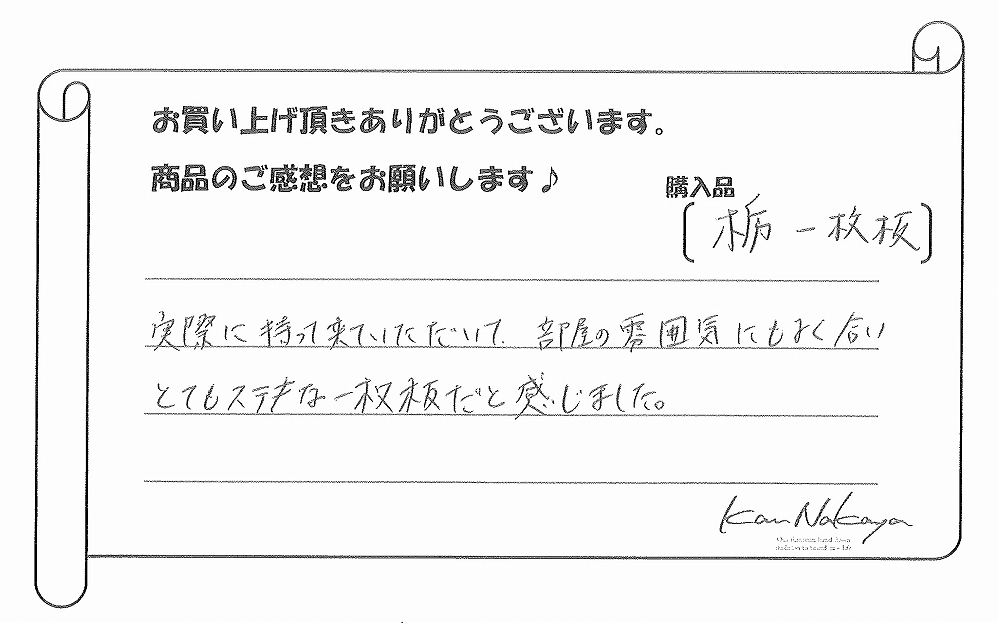 お買い上げ頂きありがとうございます。
商品のご感想をお願いします♪
購入品
〔栃一枚板〕
実際に持って来ていただいて、部屋の雰囲気にもよく合い
とてもステキな一枚板だと感じました。
Kan Nakaya